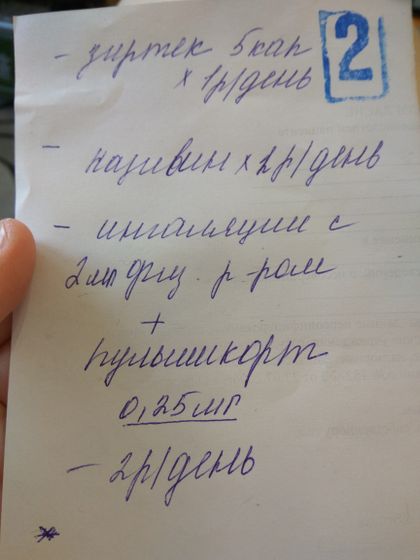 - зиртек 5 кап
х 1р/день
2
- називин х 2р/день
- ингаляции с
2мл физ. р-ром
+
пульмикорт
0,25мг
- 2р/день